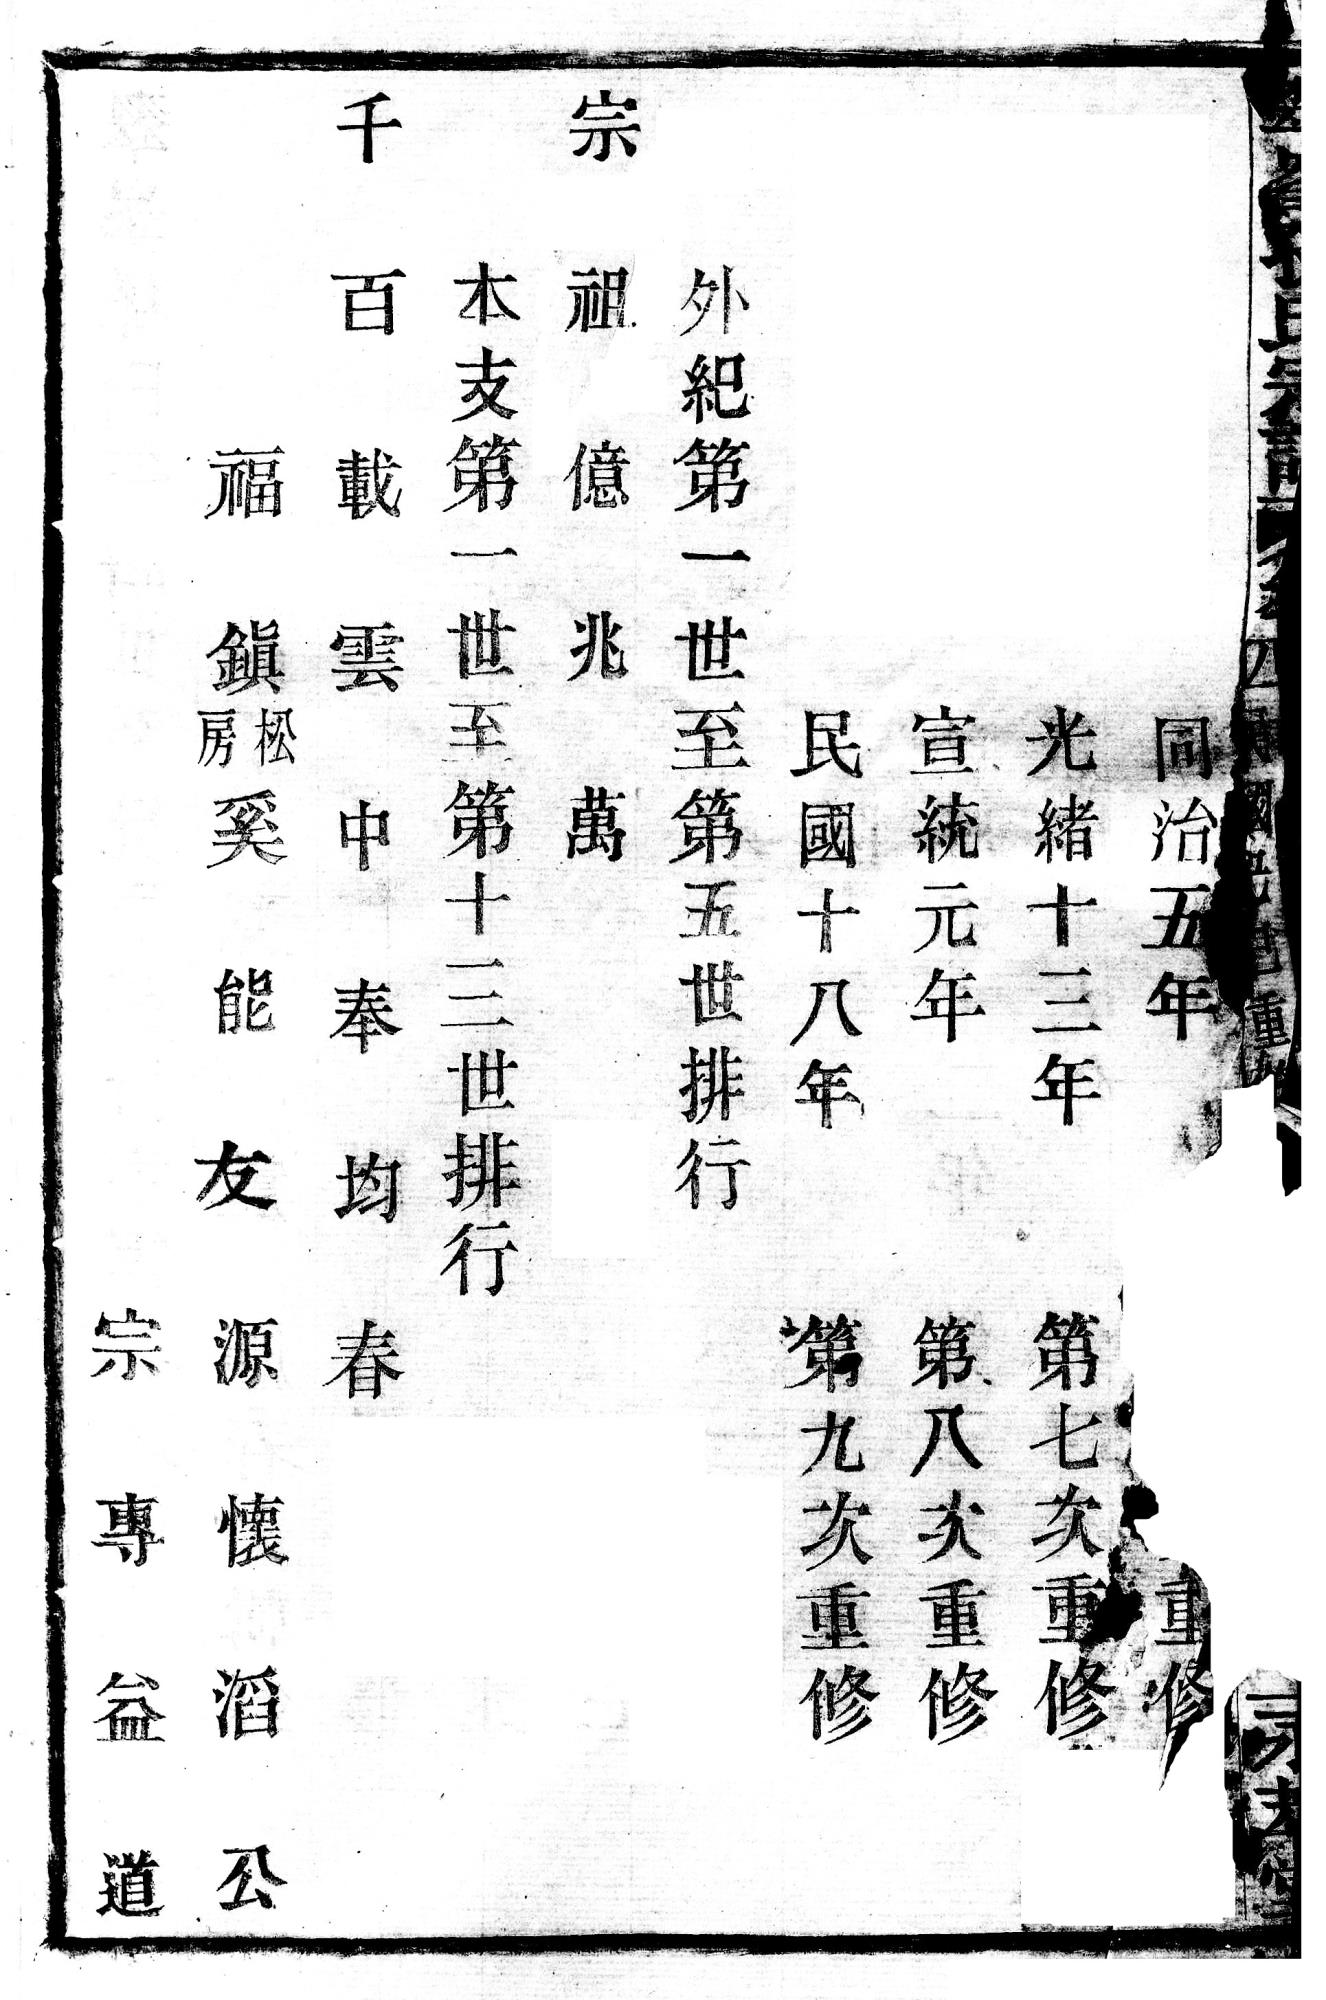 氏宗譜
同治五年 重修
光緒十三年 第七次重修
宣統元年 第八次重修
民國十八年 第九次重修
外紀第一世至第五世排行
宗祖億兆萬
本支第一世至第十二世排行
千百載雲中奉均春
福鎭松房奚能友源懷滔公
宗專益道